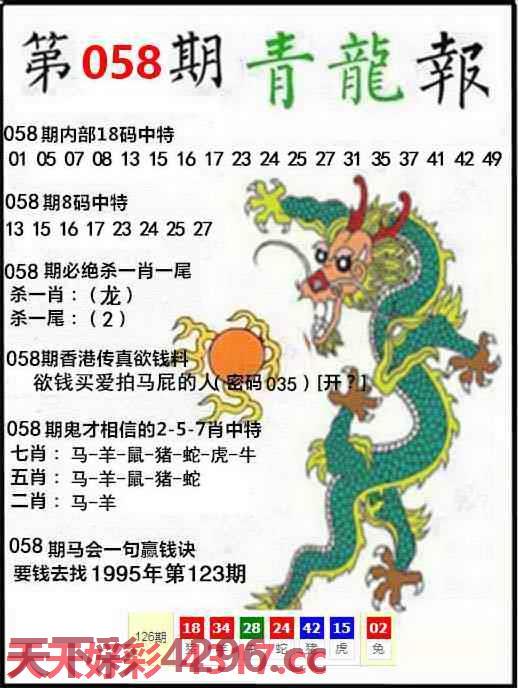 第058期青龍報
058期内部18码中特
01 05 07 08 13 15 16 17 23 24 25 27 31 35 37 41 42 49
058期8码中特
13 15 16 17 23 24 25 27
058期必绝杀一肖一尾
杀一肖：（龙）
杀一尾：（2）
058期香港传真欲钱料
欲钱买爱拍马屁的人(密码035)[开？]
058期鬼才相信的2-5-7肖中特
七肖：马-羊-鼠-猪-蛇-虎-牛
五肖：马-羊-鼠-猪-蛇
二肖：马-羊
058期马会一句赢钱诀
要钱去找1995年第123期
126期 18 34 28 24 42 15 02
猪 羊 蛇 猪 虎 兔
天天好彩4296.cc